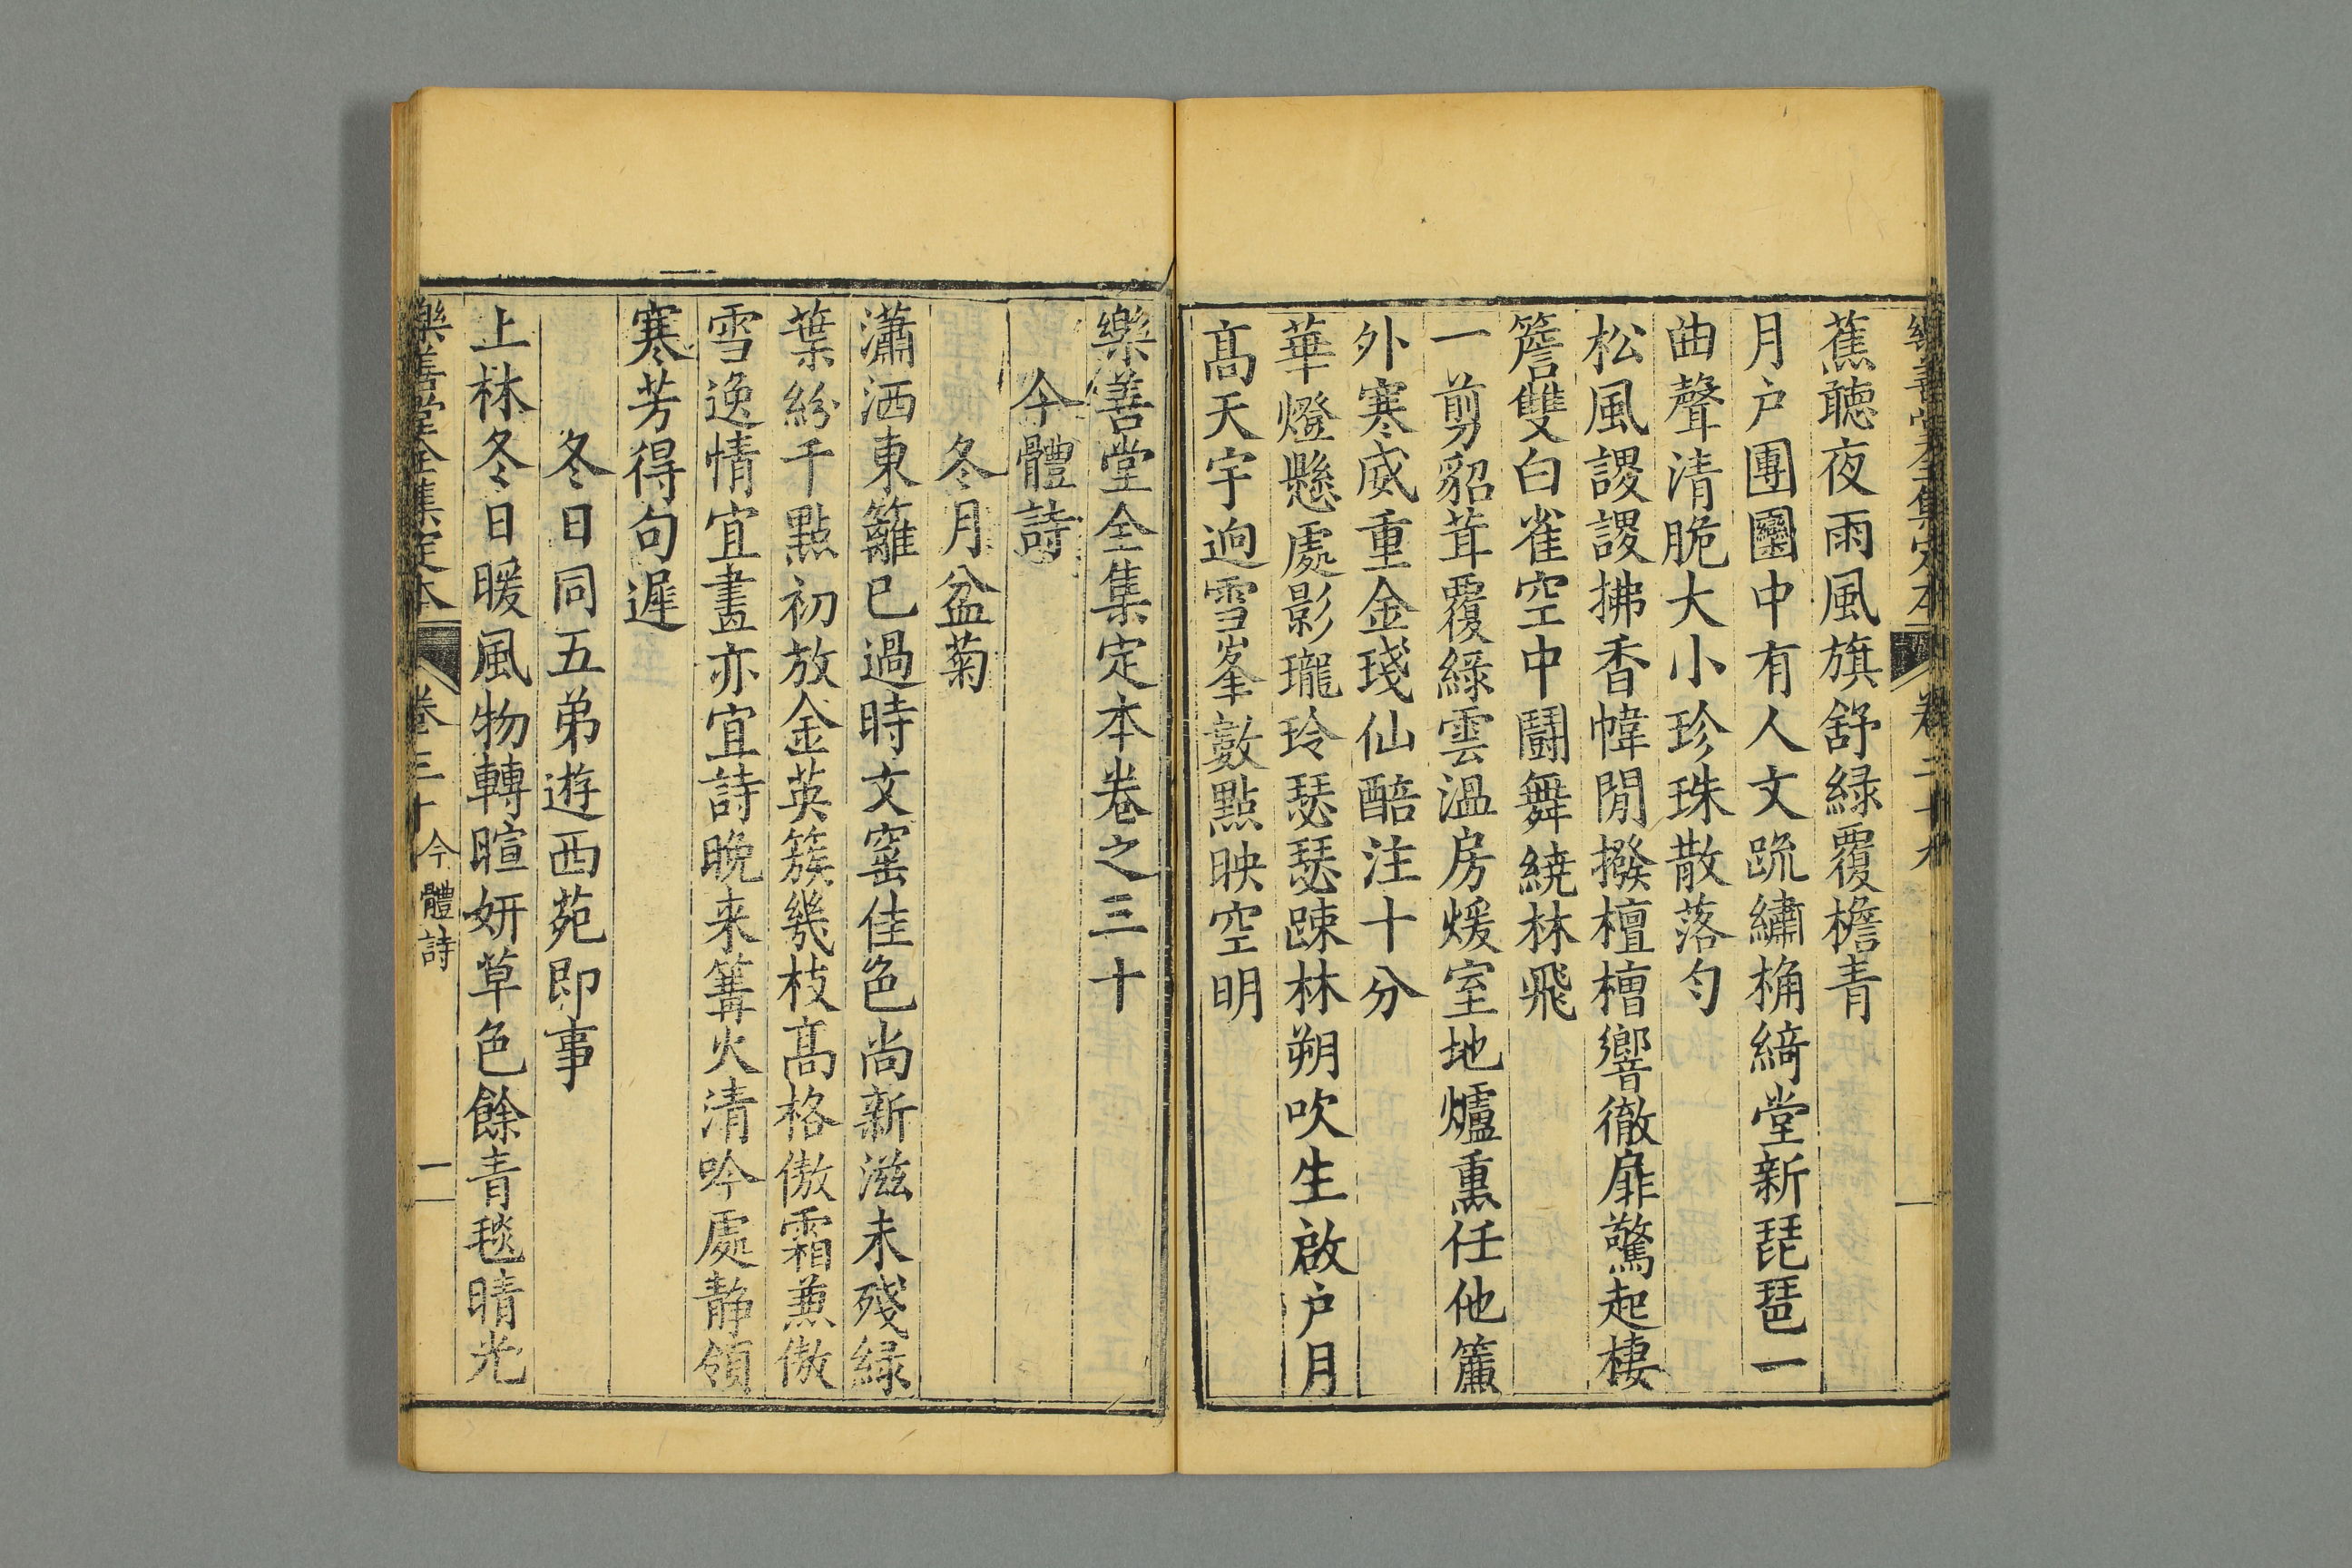 蕉聽夜雨風旗舒緑覆檐青
月户團圞中有人文疏繡桷綺堂新琵琶一
曲聲清脆大小珍珠散落勻
松風謖謖拂香幃閒撥檀槽響徹扉驚起棲
簷雙白雀空中鬪舞繞林飛
一剪貂茸覆綠雲溫房煖室地爐熏任他簾
外寒威重金琖仙醅注十分
華燈懸處影瓏玲瑟瑟踈林朔吹生啟户月
髙天宇逈雪峯數點映空明
樂善堂全集定本卷之三十
今體詩
冬月盆菊
瀟洒東籬已過時文窰佳色尚新滋未殘緑
葉紛千點初放金英簇幾枝髙格傲霜兼傲
雪逸情宜晝亦宜詩晚来篝火清吟處静領
寒芳得句遲
冬日同五弟遊西苑即事
上林冬日暖風物轉暄妍草色餘青毯晴光
樂善堂全集定本 卷三十 今體詩 一